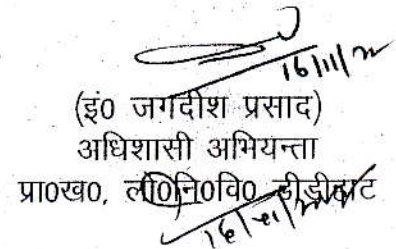 16/11/22
(इं0 जगदीश प्रसाद)
अधिशासी अभियन्ता
प्रा0ख0, लो0नि0वि0 डीडीहाट